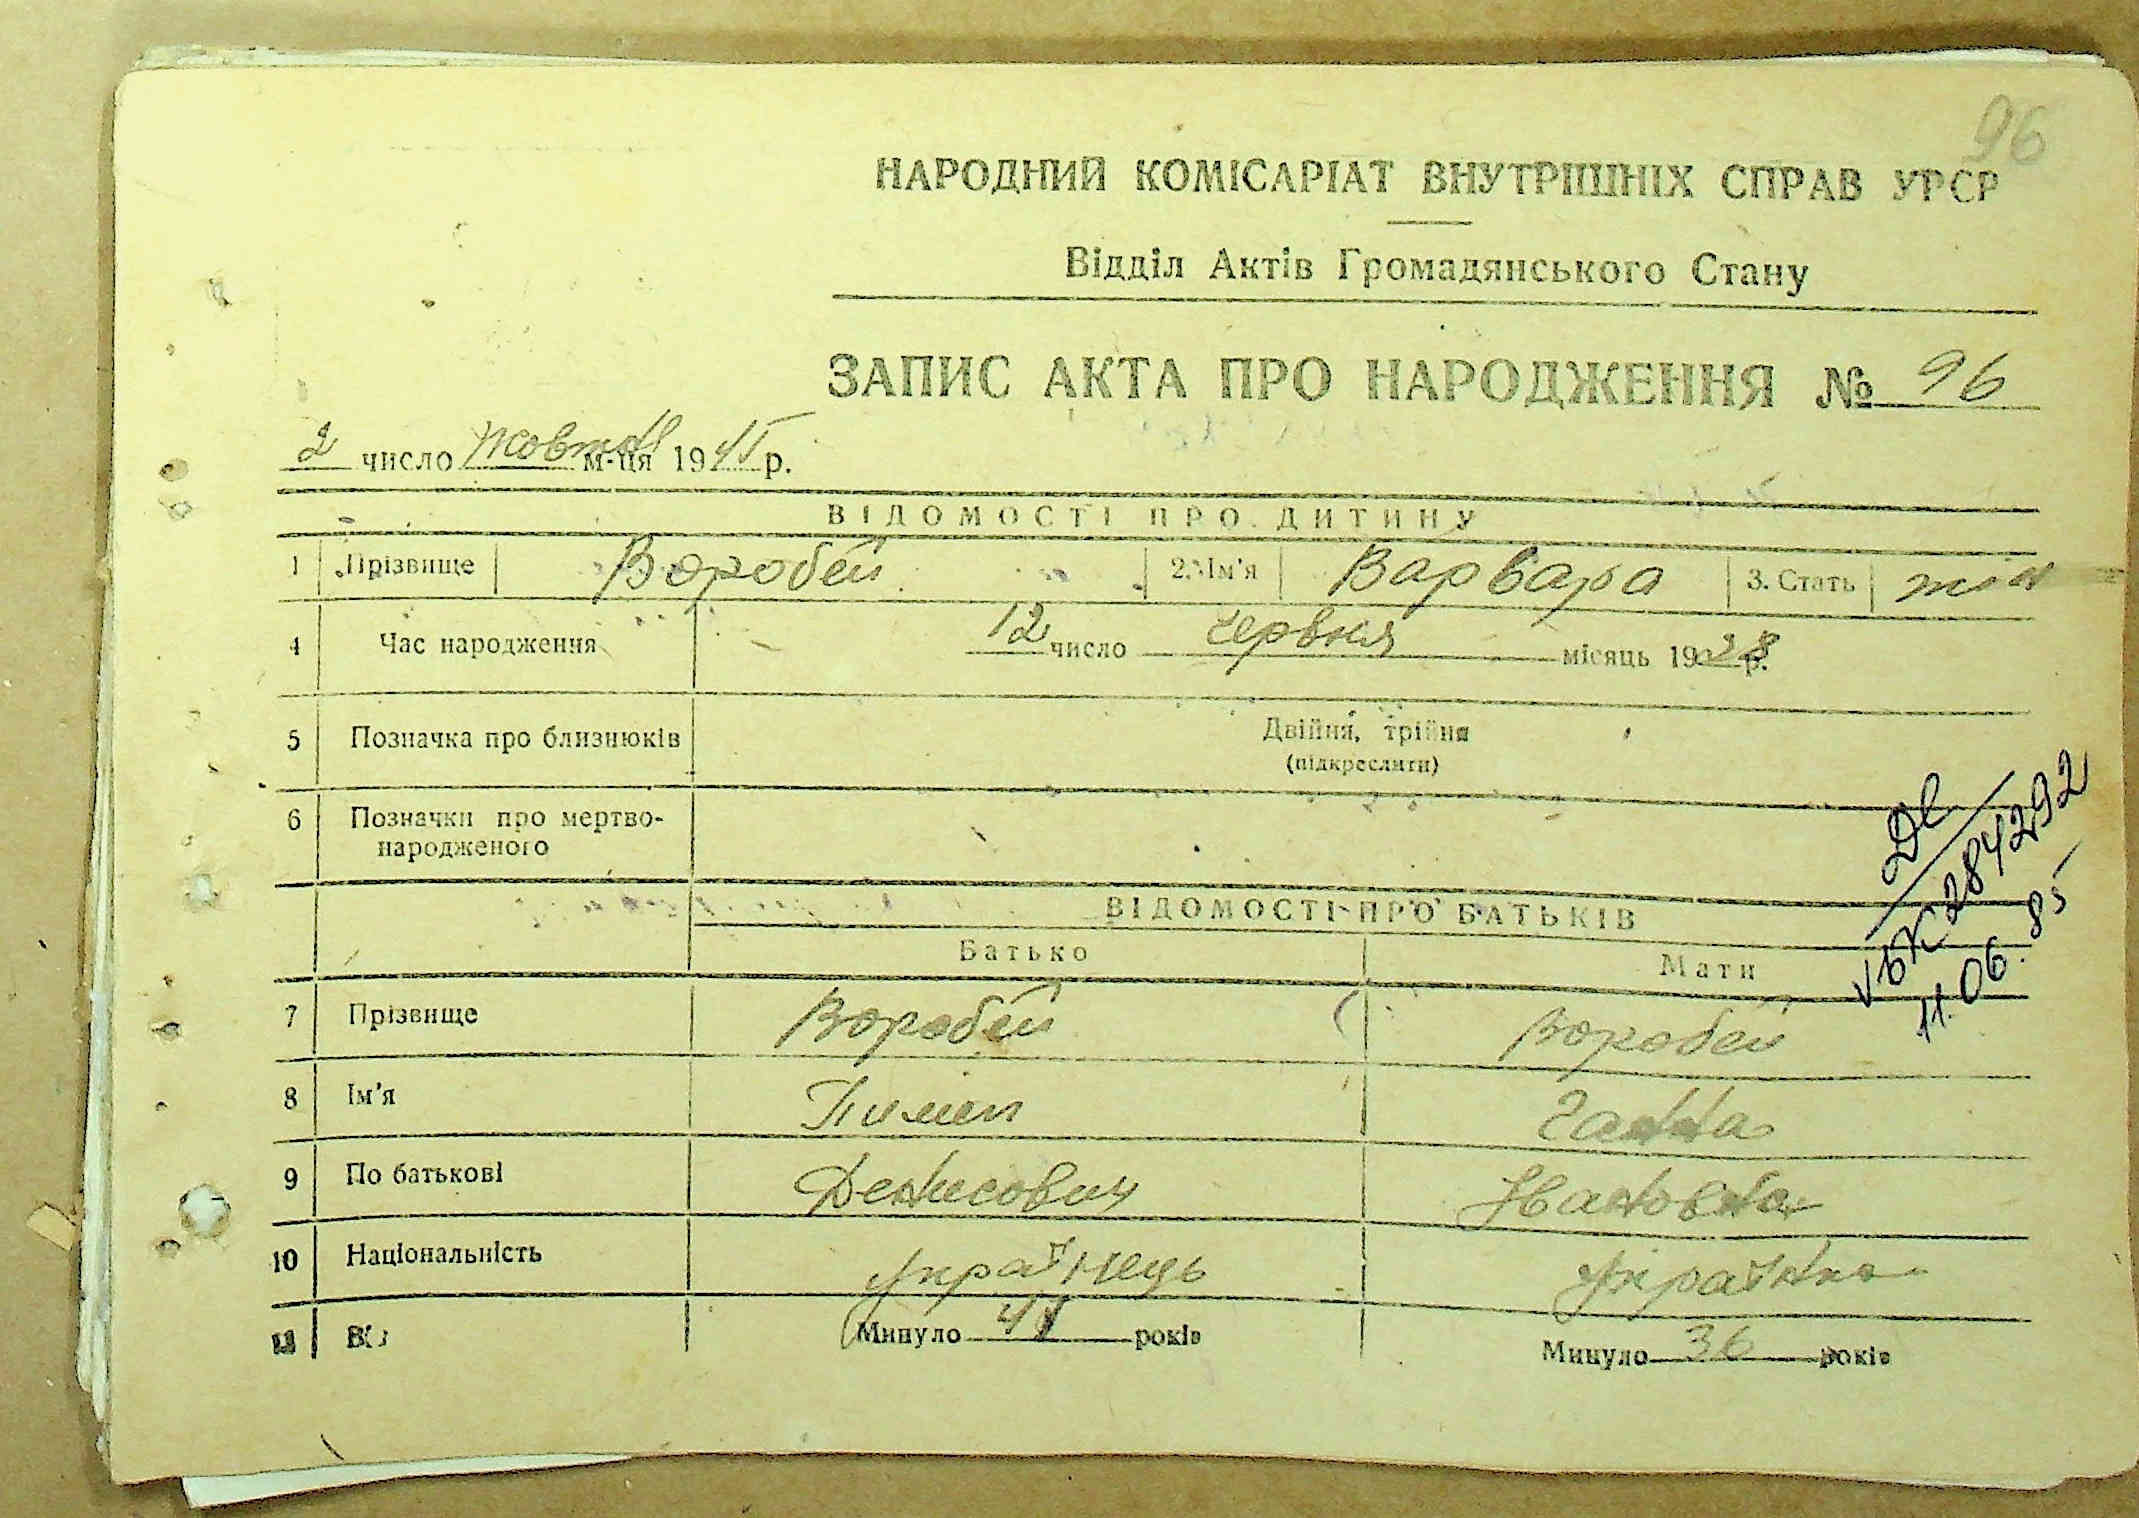 96
НАРОДНИЙ КОМІСАРІАТ ВНУТРІШНІХ СПРАВ УРСР
Відділ Актів Громадянського Стану
ЗАПИС АКТА ПРО НАРОДЖЕННЯ № 96
2 число жовтня м-ця 1945 р.
ВІДОМОСТІ ПРО ДИТИНУ
1 Прізвище Воробей 2. Ім'я Варвара 3. Стать
4 Час народження 12 число червня місяць 1928 р.
5 Позначка про близнюків Двійня, трійня
(підкреслити)
6 Позначки про мертво-
народженого
ВІДОМОСТІ ПРО БАТЬКІВ
Батько Мати
7 Прізвище Воробей Воробей
8 Ім'я Пимен Ганна
9 По батькові Денисович Івановна
10 Національність українець українка
11 Вік Минуло 41 років Минуло 36 років
VБК 284292
11.06.85